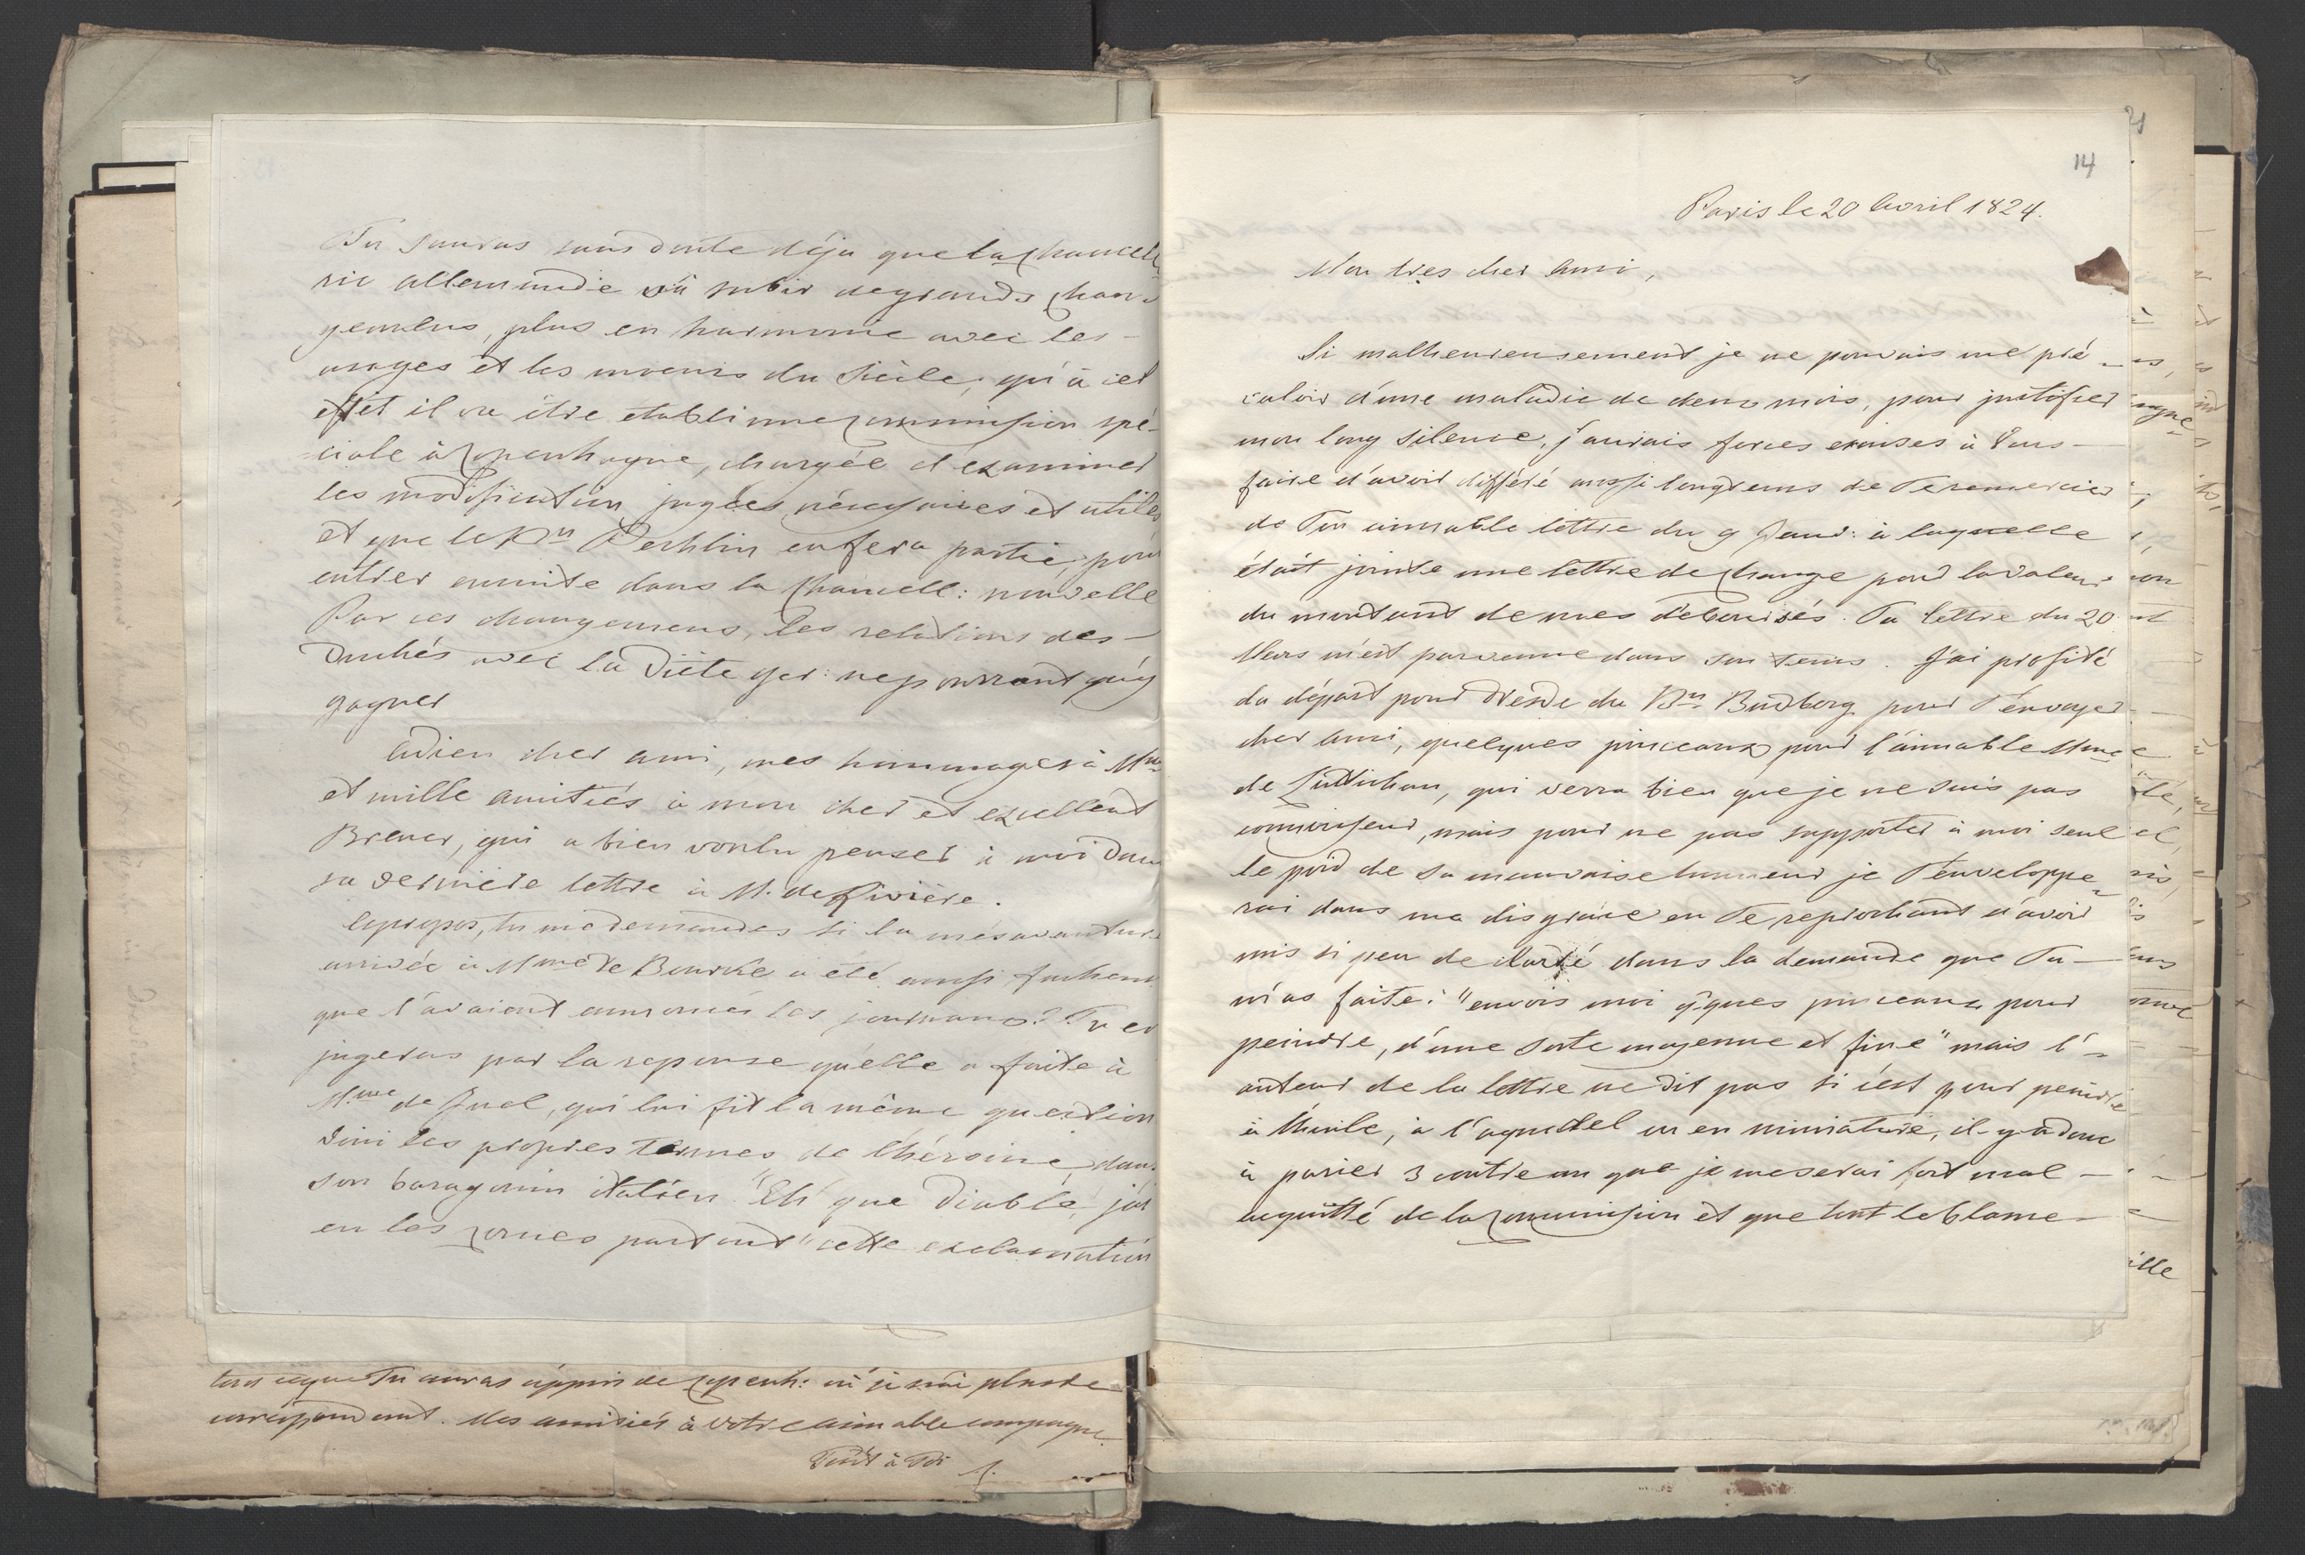 Tu sauras sans doute déja que la Chancel-
rie allemande va subir de grands chan-
gemens, plus en harmonie avec les
usages et les moeurs du Siècle, qu'à cet
effet il va être établi une Commission spé-
ciale à Copenhague, chargée d'examiner
les modification jugées nécessaires et utiles
et que le Bn Pechlin en fera partie, pour
entrer ensuite dans la Chancell: nouvelle
Par ces changemens, les relations des
Duchés avec la Diète ger: ne pourront qu'y
gagner
Adieu cher ami, mes hommages à Mme
et mille amitiés à mon cher et excellent
Breuer, qui a bien voulu penser à moi dans
sa dernière lettre à M. de Rivière.
Apropos, tu me demandes si la mesavanture
arrivée à Mme de Bourke a été aussi facheuse
que l'avaient annoncés les journaux? Tu en
jugeras par la reponse qu'elle a faite à
Mme de Juel, qui lui fit la même question
Voici les propres termes de l'héroine, dans
son baragouin italien. "Eh que diable, j'ai
en les cornes partout" cette exclamation
tout ce que Tu auras appris de Copenh: où je n'ai plus de
correspondant. Mes amitiés à votre aimable compagne.
Tout à Toi
J.
14
Paris le 20 Avril 1824.
Mon tres cher Ami,
Si malheureusement je ne pouvais me pré-
valoir d'une maladie de deux mois, pour justifier
mon long silence, j'aurais forces excuses à Vous
faire d'avoir différé aussi longtems de Te remercier
de Ton aimable lettre du 9 Janv: à laquelle
était jointe une lettre de change pour la valeur
du montant de mes déboursés. Ta lettre du 20
Mars m'est parvenue dans son tems. J'ai profité
du départ pour Dresde du Bn Budberg pour T'envoyer
cher ami, quelques pinceaux pour l'aimable Mme
de Lüttichau, qui verra bien que je ne suis pas
connoisseur, mais pour ne pas supporter à moi seul
le poid de sa mauvaise humeur je T'enveloppe-
rai dans ma disgrâce en Te reprochant d'avoir
mis si peu de clarté dans la demande que Tu
m'as faite: "envois moi qques pinceaux pour
peindre, d'une sorte moyenne et fine" mais l'-
auteur de la lettre ne dit pas si c'est pour peindre
à l'huile, à l'aquarel ou en miniature, il-y-a donc
à parier 3 contre un que je me serai fort mal
acquitté de la Commission et que tout le blame